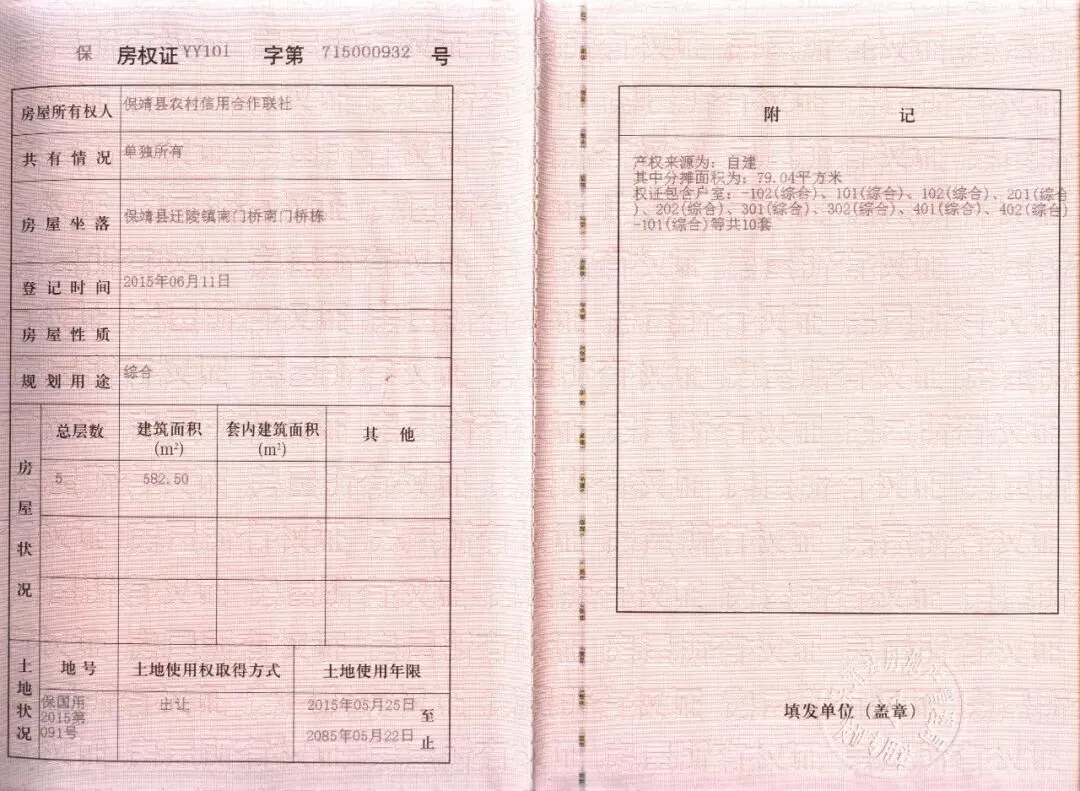 保 房权证 YY101 字第 715000932 号
房屋所有权人 保靖县农村信用合作联社
共有情况 单独所有
房屋坐落 保靖县迁陵镇南门桥南门桥栋
登记时间 2015年06月11日
房屋性质
规划用途 综合
房屋状况
总层数 建筑面积(m²) 套内建筑面积(m²) 其他
5 582.50
土地状况
地号 土地使用权取得方式 土地使用年限
保国用
2015第
091号
出让
2015年05月25日
至
2085年05月22日
止
附 记
产权来源为：自建
其中分摊面积为：79.04平方米
权证包含户室：-102(综合)、101(综合)、102(综合)、201(综合
)、202(综合)、301(综合)、302(综合)、401(综合)、402(综合)
-101(综合)等共10套
填发单位（盖章）